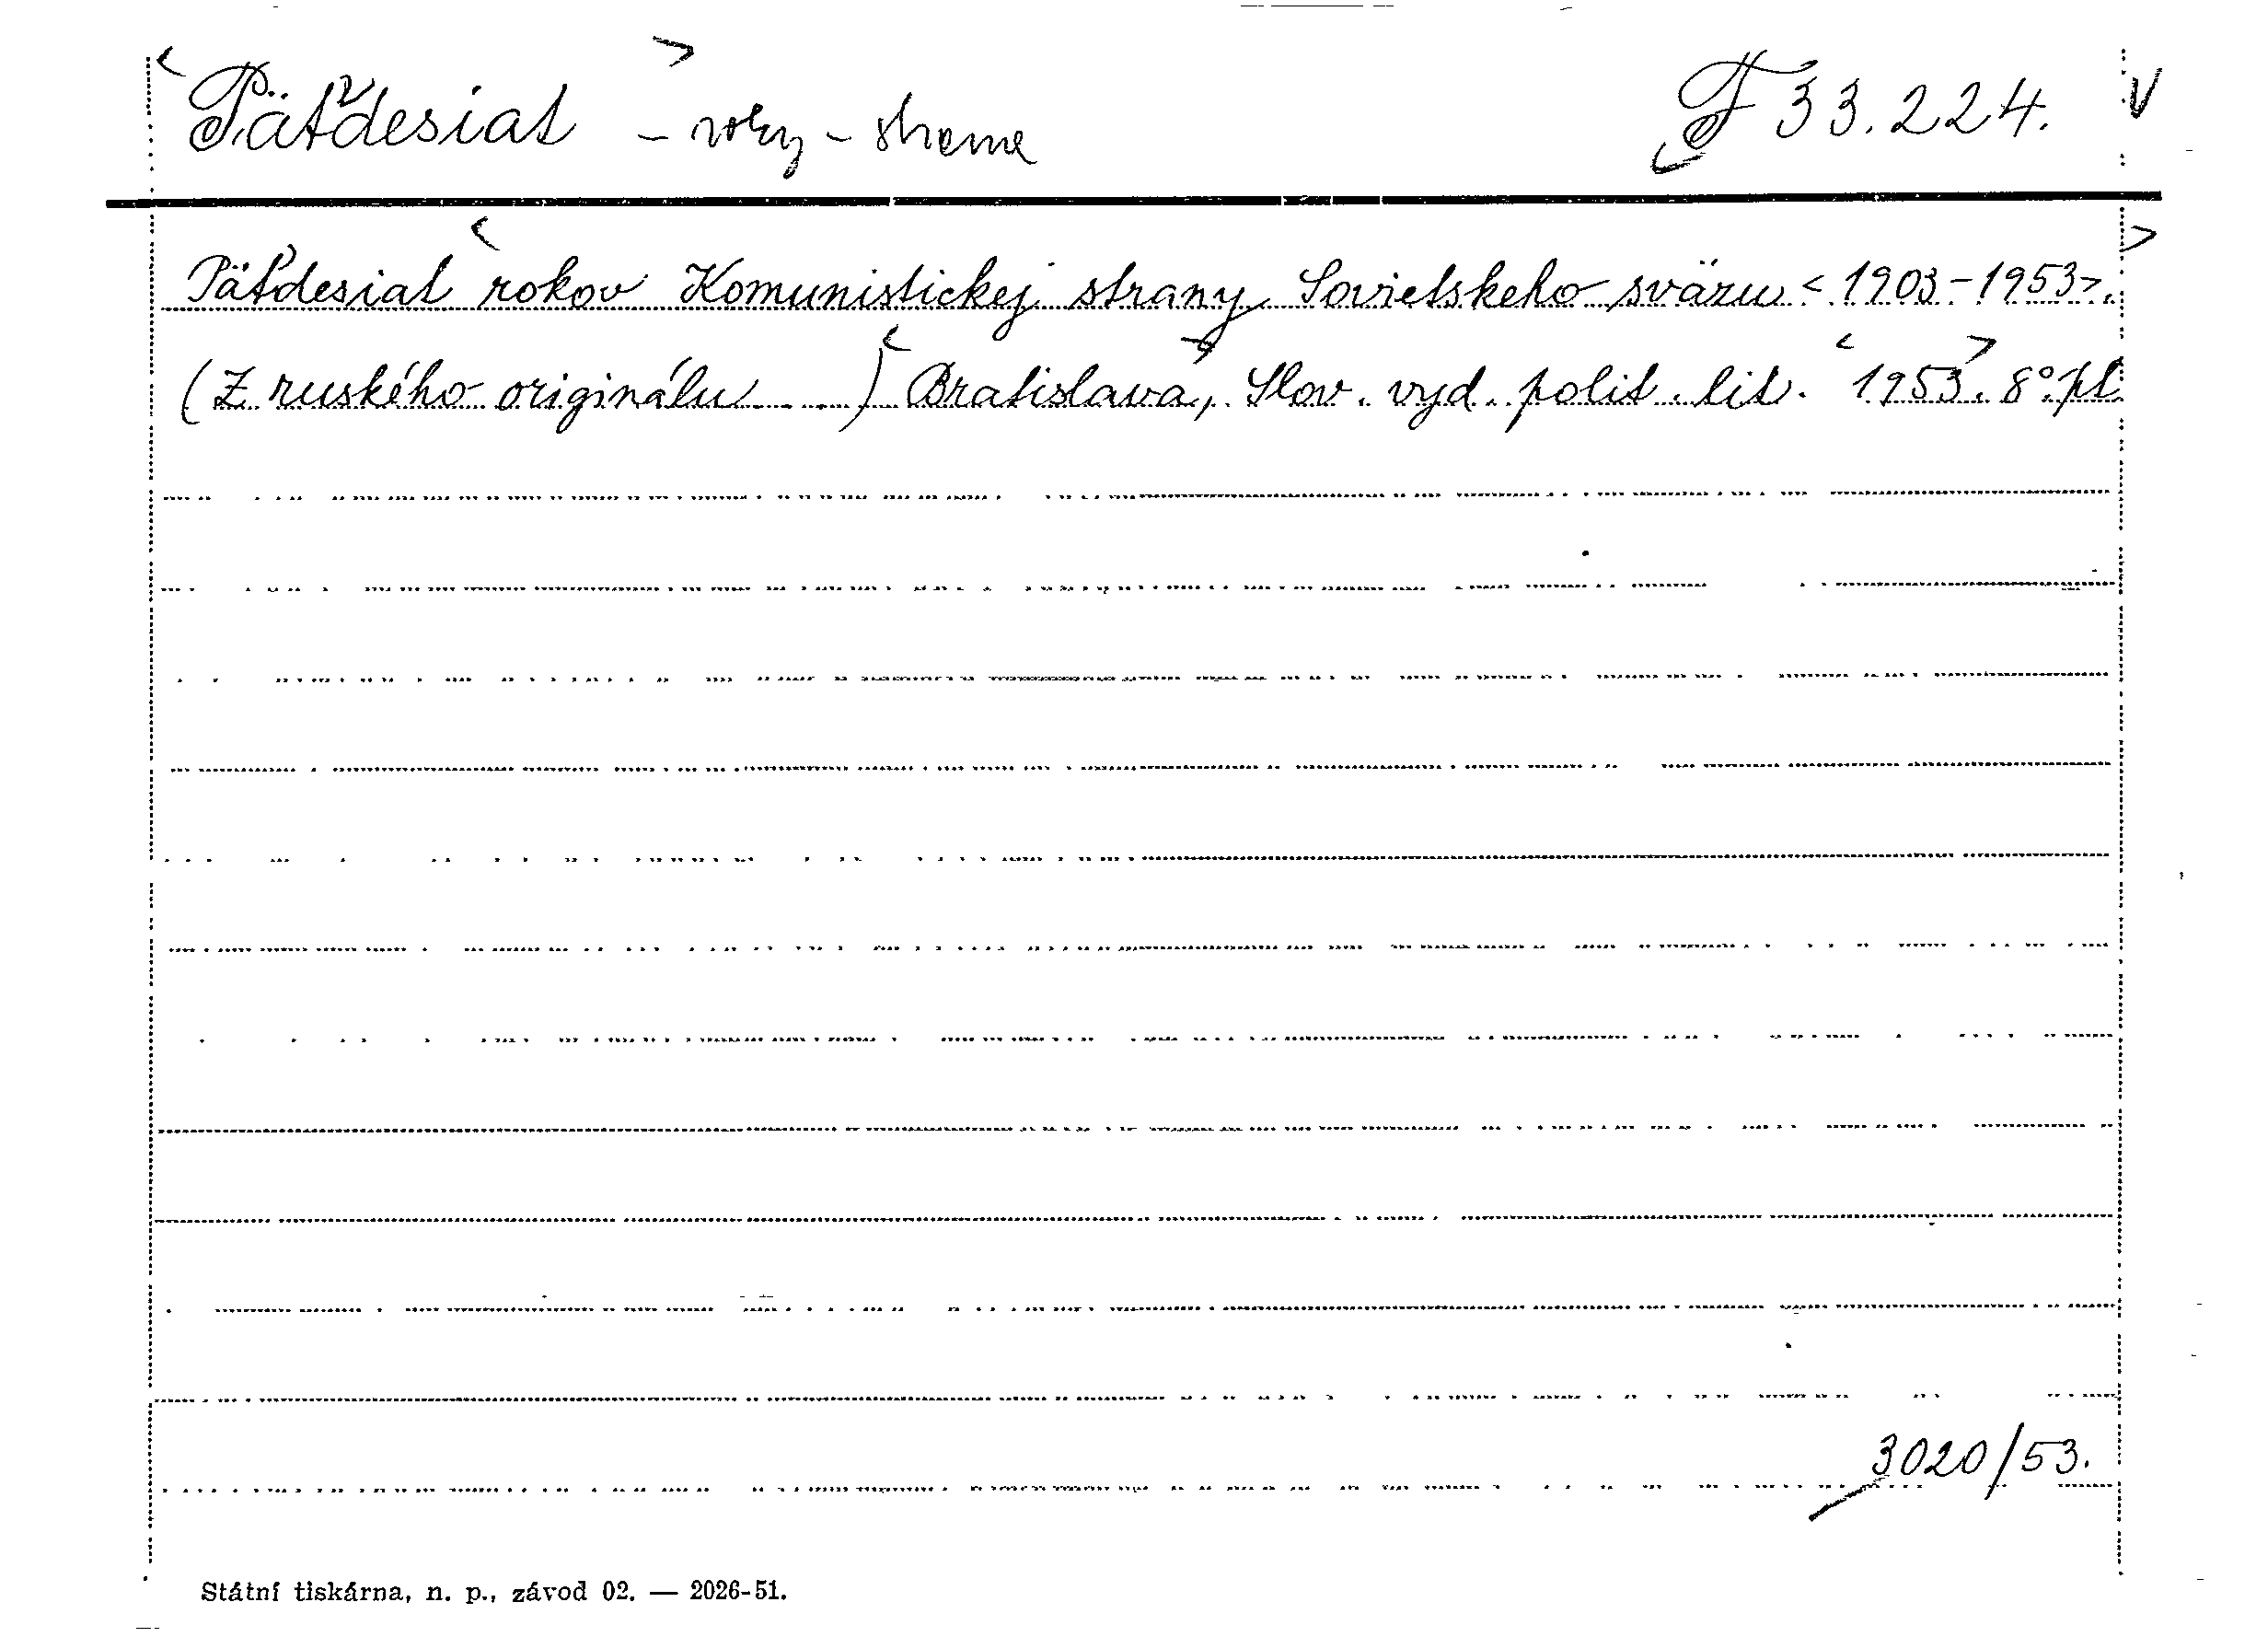 Päťdesiat - roky - strana F 33.224. V
Päťdesiat rokov Komunistickej strany Sovietskeho sväzu <1903-1953>.
(Z ruského originálu . .) Bratislava, Slov. vyd. polit. lit. 1953. 8°. pl.
3020/53.
Státní tiskárna, n. p., závod 02. — 2026-51.